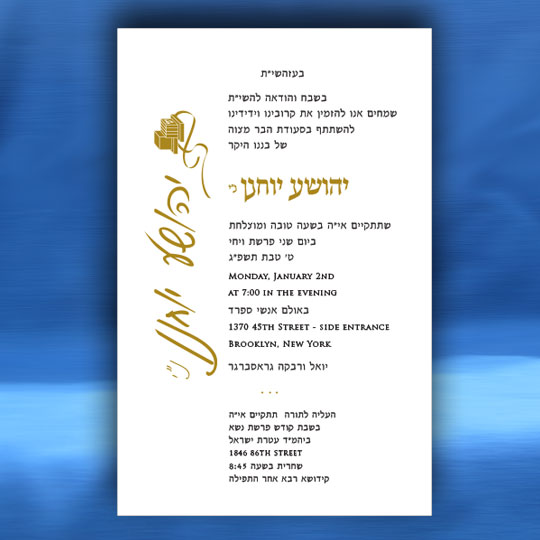 בעזהשי"ת
בשבח והודאה להשי"ת
שמחים אנו להזמין את קרובינו וידידינו
להשתתף בסעודת הבר מצוה
של בננו היקר
יהושע יוחנן ני
שתתקיים אי"ה בשעה טובה ומוצלחת
ביום שני פרשת ויחי
ט' טבת תשפ"ג
Monday, January 2nd
at 7:00 in the evening
באולם אנשי ספרד
1370 45th Street - side entrance
Brooklyn, New York
יואל ורבקה גראסברגר
העליה לתורה תתקיים אי"ה
בשבת קודש פרשת נשא
ביהמ"ד עטרת ישראל
1846 86th Street
שחרית בשעה 8:45
קידושא רבא אחר התפילה
יהושע יוחנן ני"